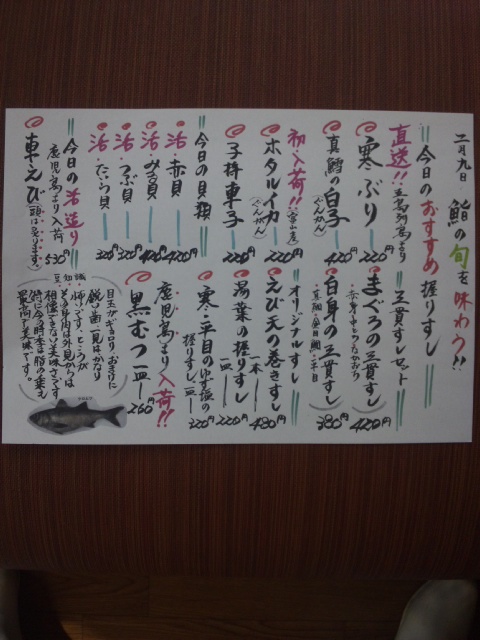 二月九日 鮨の旬を味わう!!
今日のおすすめ握りすし
直送!! 五島列島より
寒ぶり 220円
真鱈の白子 (ぐんかん) 420円
初入荷!! (富山産)
ホタルイカ (ぐんかん) 220円
子持車子 220円
今日の貝類
活赤貝 420円
活みる貝 420円
活つぶ貝 320円
活たいら貝 320円
今日の活造り
鹿児島より入荷
車えび (頭は炙ります。) 530円
三貫すしセット
まぐろの三貫すし 420円
白身の三貫すし 380円
オリジナルすし
えび天の巻きすし 一本 480円
湯葉の握りすし 一皿 220円
寒平目のゆず塩の
握りすし 一皿 320円
鹿児島より入荷!!
黒むつ 一皿 260円
豆知識
目玉がギョロリおまけに
鋭い歯一見はかなり
怖いです。ところが
その身肉は外見からは
想像できない美味さです
特に今時季は脂の乗も
最高で美味です。